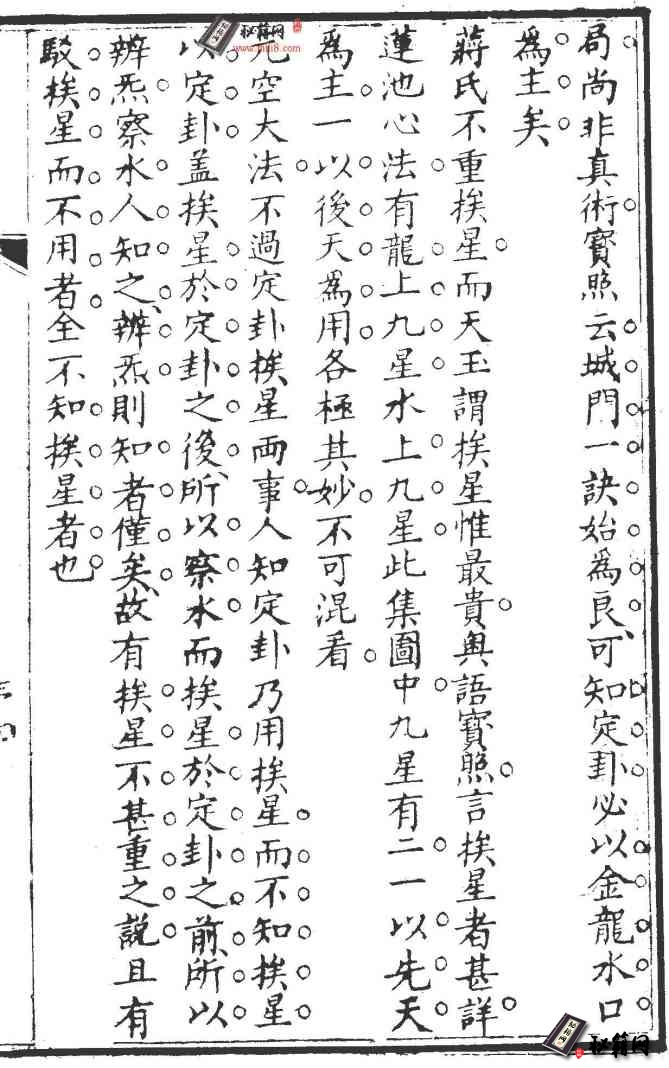 局尚非真術寳照云城門一訣始為良可知定卦必以金龍水口
為主矣
蔣氏不重挨星而天玉謂挨星惟最貴奥語寳照言挨星者甚詳
蓮池心法有龍上九星水上九星此集圖中九星有二一以先天
為主一以後天為用各極其妙不可混看
元空大法不過定卦挨星兩事人知定卦乃用挨星而不知挨星
以定卦盖挨星於定卦之後所以察水而挨星於定卦之前所以
辨炁察水人知之辨炁則知者僅矣故有挨星不甚重之説且有
駁挨星而不用者全不知挨星者也
秘籍网
秘籍网